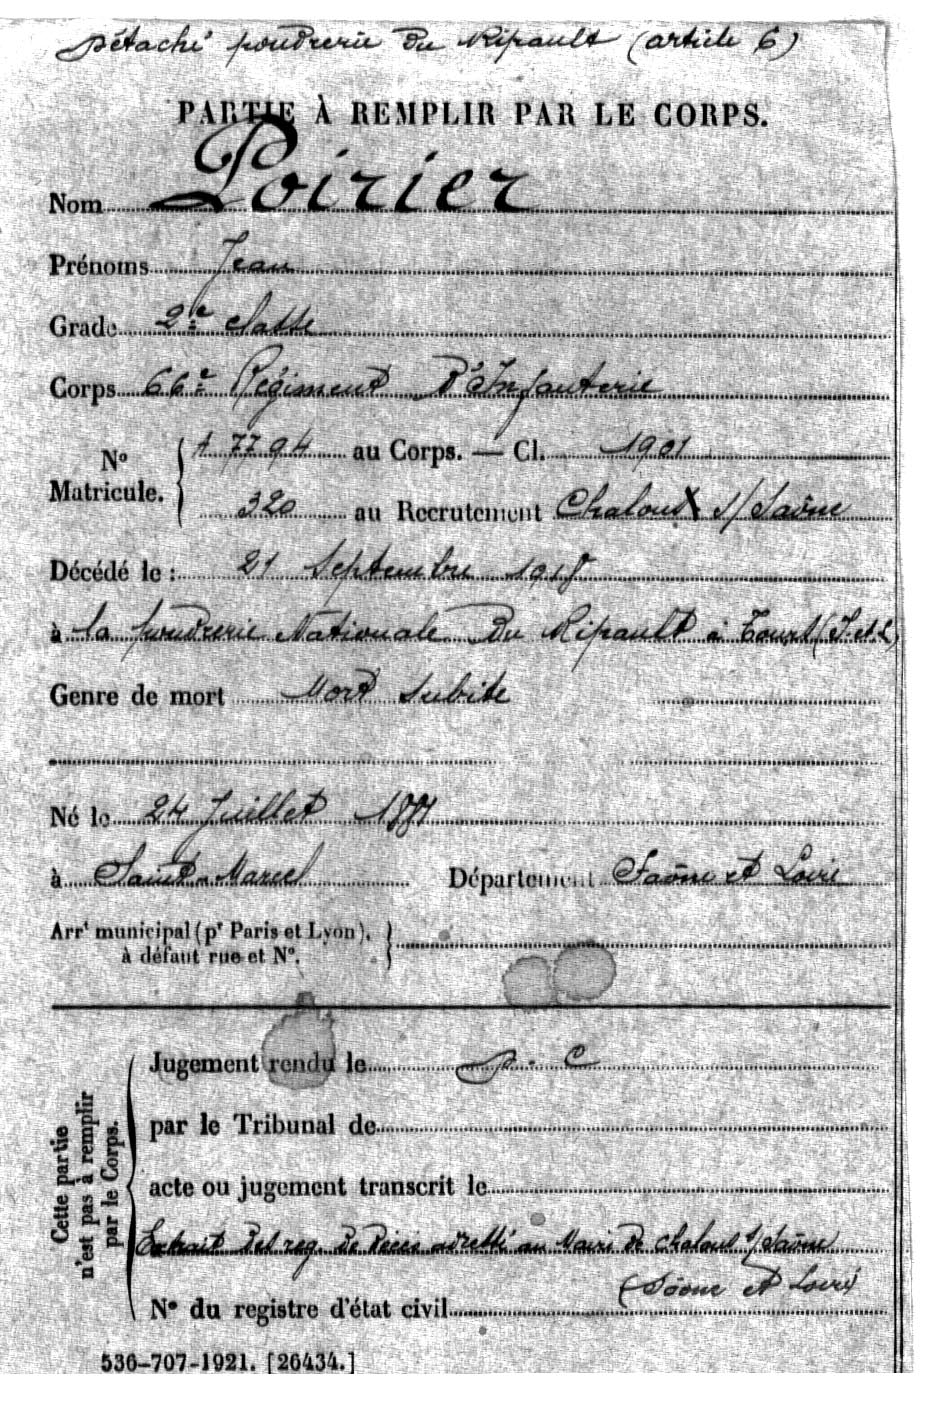 Détaché poudrerie du Ripault (article 6)
PARTIE À REMPLIR PAR LE CORPS.
Nom Poirier
Prénoms Jean
Grade 2e classe
Corps 66e Régiment d'Infanterie
No Matricule. 7794 au Corps. — Cl. 1901
320 au Recrutement Chalons s/ Saône
Décédé le : 21 Septembre 1918
à la poudrerie Nationale du Ripault à Tours (I.-et-L)
Genre de mort Mort subite
Né le 24 Juillet 1881
à Saint-Marcel Département Saône et Loire
Arrt municipal (pr Paris et Lyon),
à défaut rue et No.
Cette partie
n'est pas à remplir
par le Corps.
Jugement rendu le
par le Tribunal de
acte ou jugement transcrit le
Extrait des reg. de décès adressé au Maire de Chalons s/ Saône
(Saône et Loire)
No du registre d'état civil
536-707-1921. [26434.]